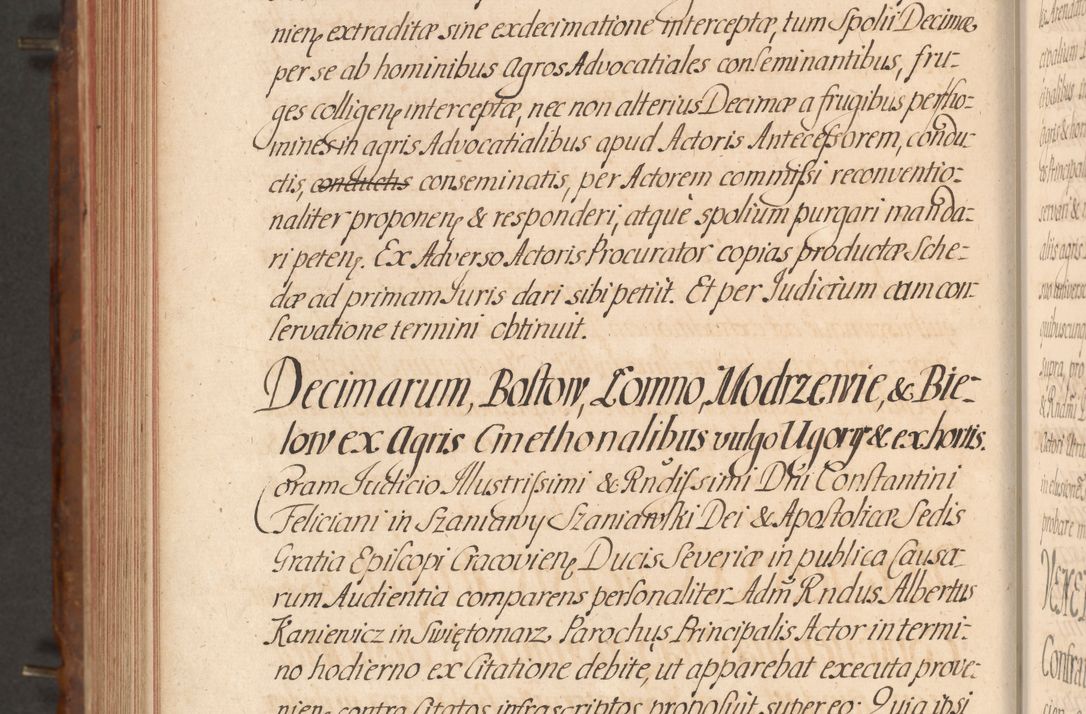 nienę extraditæ sine exdecimatione interceptæ, tum Spolii Decimæ
per se ab hominibus Agros Advocatiales conseminantibus, fru-
ges colligenę interceptæ, nec non alterius Decimæ a frugibus per ho-
mines in agris Advocatialibus apud Actoris Antecessorem, condu-
ctis, conductis conseminatis, per Actorem commissi reconventio-
naliter proponenę & responderi, atquè spolium purgari manda-
ri petenę. Ex Adverso Actoris Procurator copias productæ Sche-
dæ ad primam Juris dari sibi petiit. Et per Judicium cum con-
servatione termini obtinuit.
Decimarum, Bostow, Łomno, Modrzewie, & Bie-
low ex Agris Cmethonalibus vulgo Ugory & ex hortis.
Coram Judicio Illustrissimi & Rndissimi Dni Constantini
Feliciani in Szaniawy Szaniawski Dei & Apostolicæ Sedis
Gratia Episcopi Cracovienę Ducis Severiæ in publica Causa-
rum Audientia comparens personaliter Adm Rndus Albertus
Kaniewicz in Swiętomarz Parochus Principalis Actor in termi-
no hodierno ex Citatione debite, ut apparebat executa prove-
nienę contra Citatos infrascriptos proposuit super eo: Quia ipsi